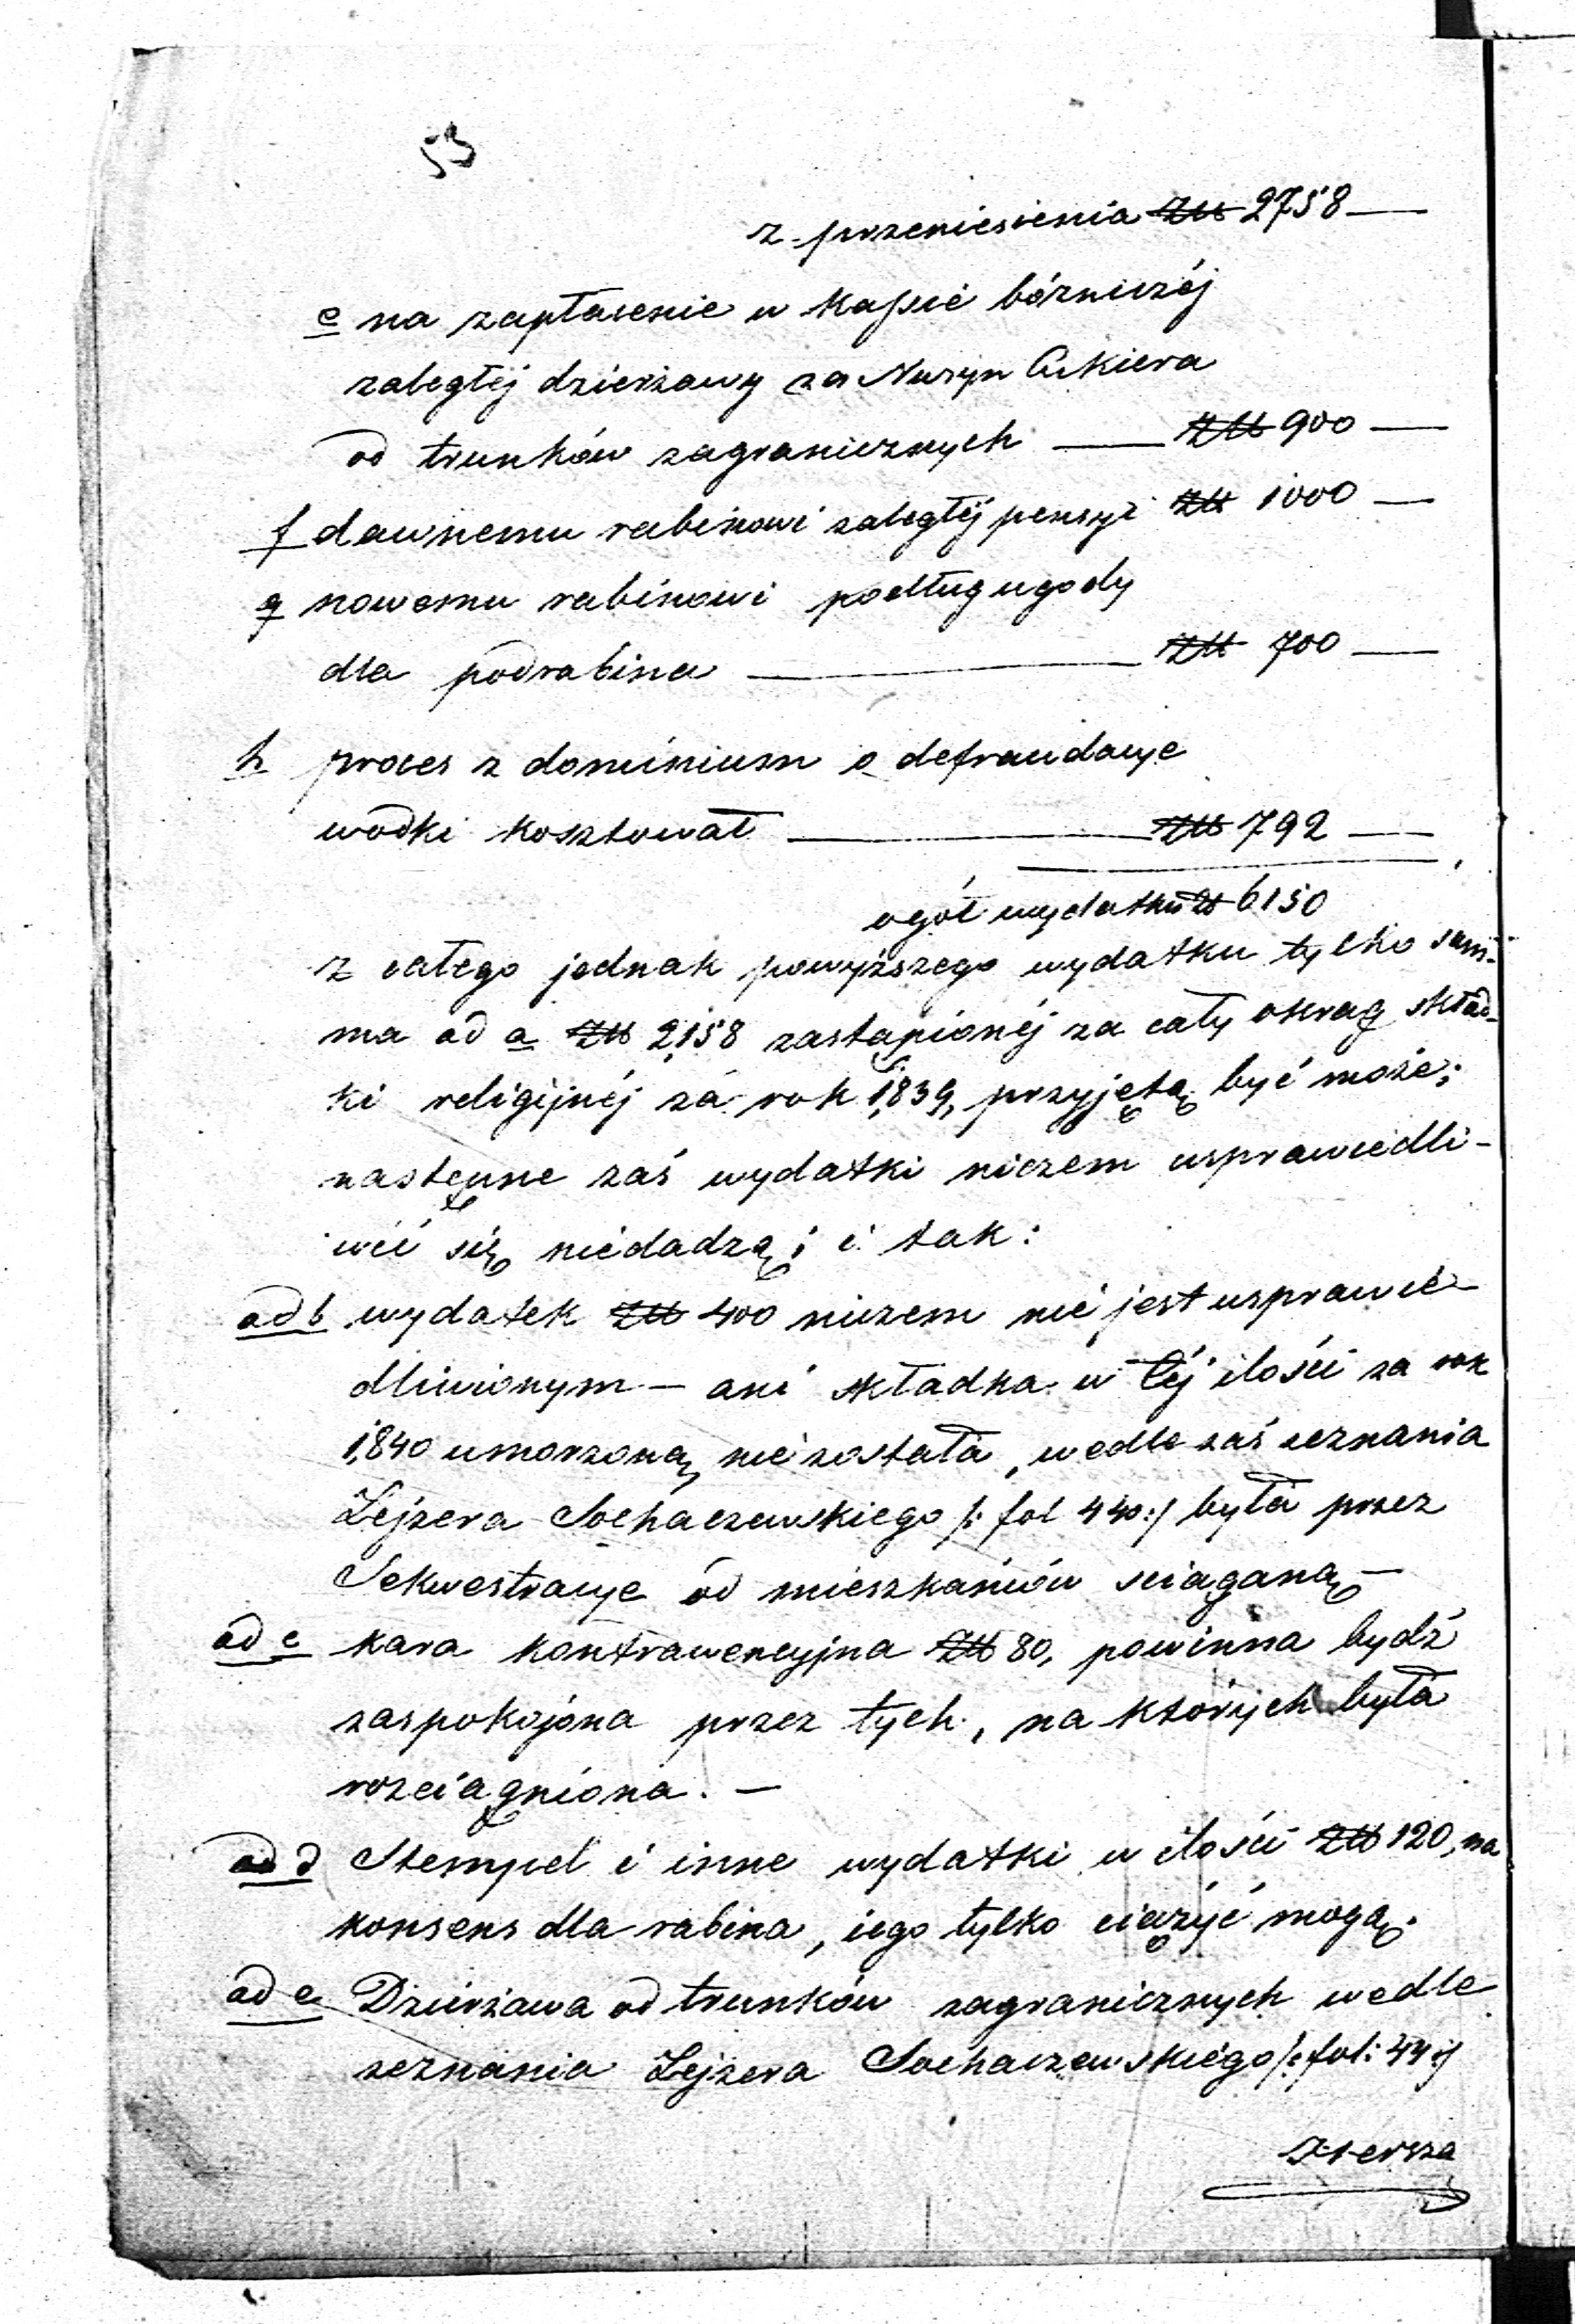 53
z przeniesienia Złt 2758 —
e na zapłacenie w kassie bóżniczéj
zaległéj dzierżawy za Nusyn Cukiera
od trunków zagranicznych — Złt 900 —
f dawnemu rabinowi zaległéj pensyi Złt 1000 —
g nowemu rabinowi podług ugody
dla podrabina — Złt 700 —
h proces z dominium o defraudacye
wódki kosztował — Złt 792 —
ogół wydatku Zł 6150
z całego jednak powyższego wydatku tylko sum-
ma ad a Złt 2158 zastąpionéj za cały okrąg skład-
ki religijnéj za rok 1839, przyjętą być może;
następne zaś wydatki niczem usprawiedli-
wić się niedadzą; i tak:
ad b wydatek Złt 400 niczem nie jest usprawie-
dliwionym — ani składka w téj ilości za rok
1840 umorzoną nie została, wedle zaś zeznania
Lejzera Sochaczewskiego /: fol 440:/ była przez
Sekwestracye od mieszkańców sciąganą —
ad c kara kontrawencyjna Złt 80, powinna bydź
zaspokojona przez tych, na których była
rozciągniona. —
ad d Stempel i inne wydatki w ilości Złt 120, na
konsens dla rabina, iego tylko ciążyć mogą.
ad e Dzierżawa od trunków zagranicznych wedle
zeznania Lejzera Sochaczewskiego /: fol: 44